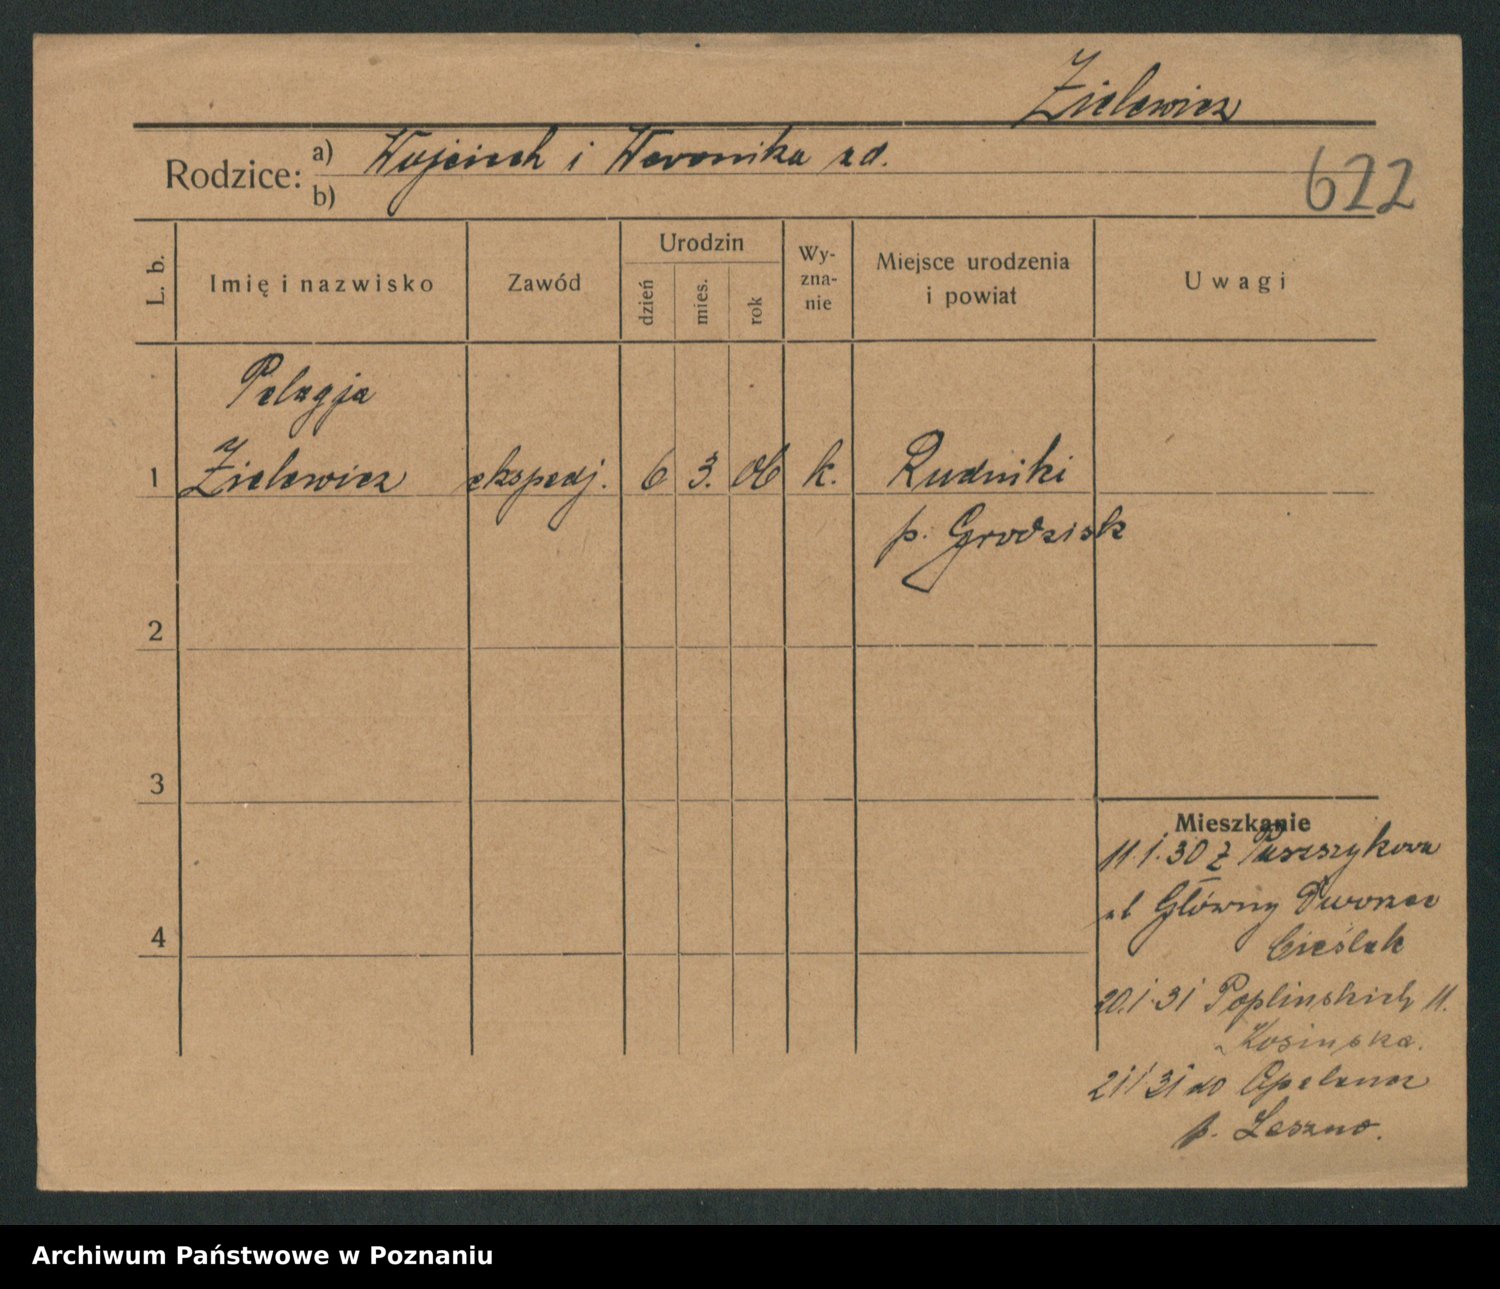 Zielewicz
Rodzice: a) Wojciech i Weronika zd.
b)
622
L. b.
Imię i nazwisko
Zawód
Urodzin
dzień
mies.
rok
Wy-
zna-
nie
Miejsce urodzenia
i powiat
Uwagi
Pelagja
1 Zielewicz ekspedj. 6 3. 06 k. Rudniki
p. Grodzisk
2
3
4
Mieszkanie
11.1.30 z
Główny Dworzec
Cieślak
20.1.31 Poplinskich 11.
Kosinska.
21/1 31 do
p. Leszno.
Archiwum Państwowe w Poznaniu